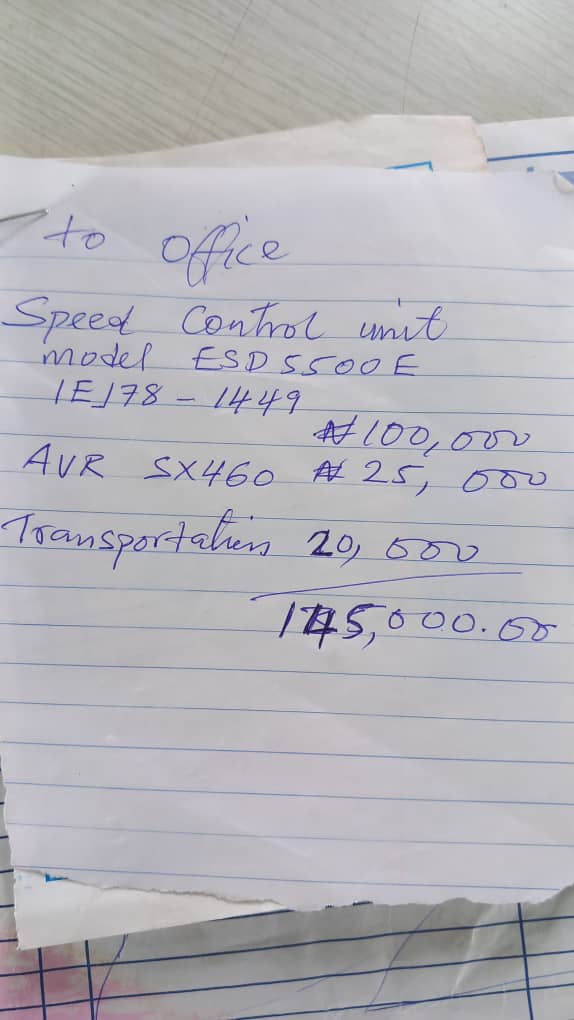 to office
Speed Control unit
model ESD5500E
1EJ78-1449
₦100,000
AVR SX460 ₦25,000
Transportation 20,000
145,000.00